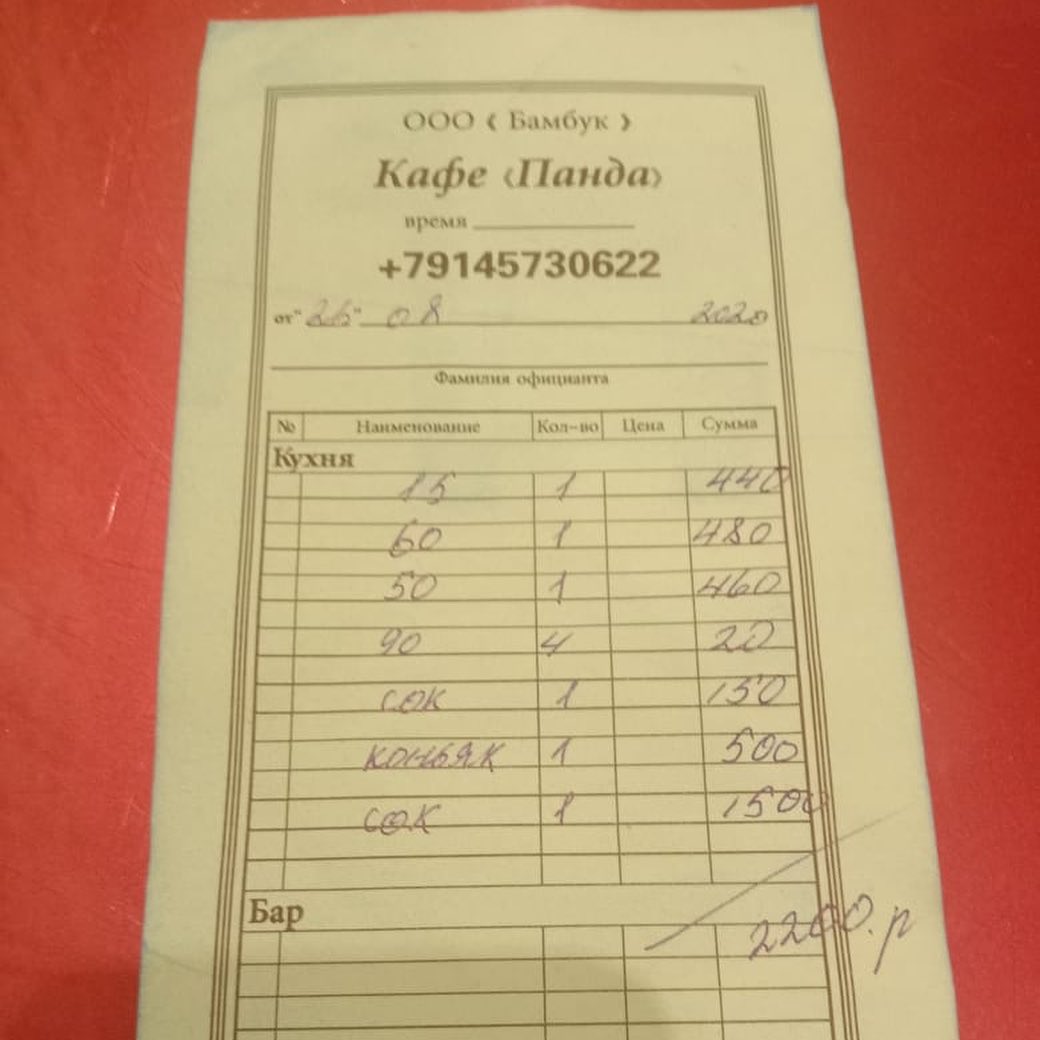 ООО « Бамбук »
Кафе «Панда»
время
+79145730622
от " 26 " 08 2020
Фамилия официанта
№ Наименование Кол-во Цена Сумма
Кухня
15 1 440
60 1 480
50 1 460
90 4 20
сок 1 150
коньяк 1 500
сок 1 150
Бар
2200.р